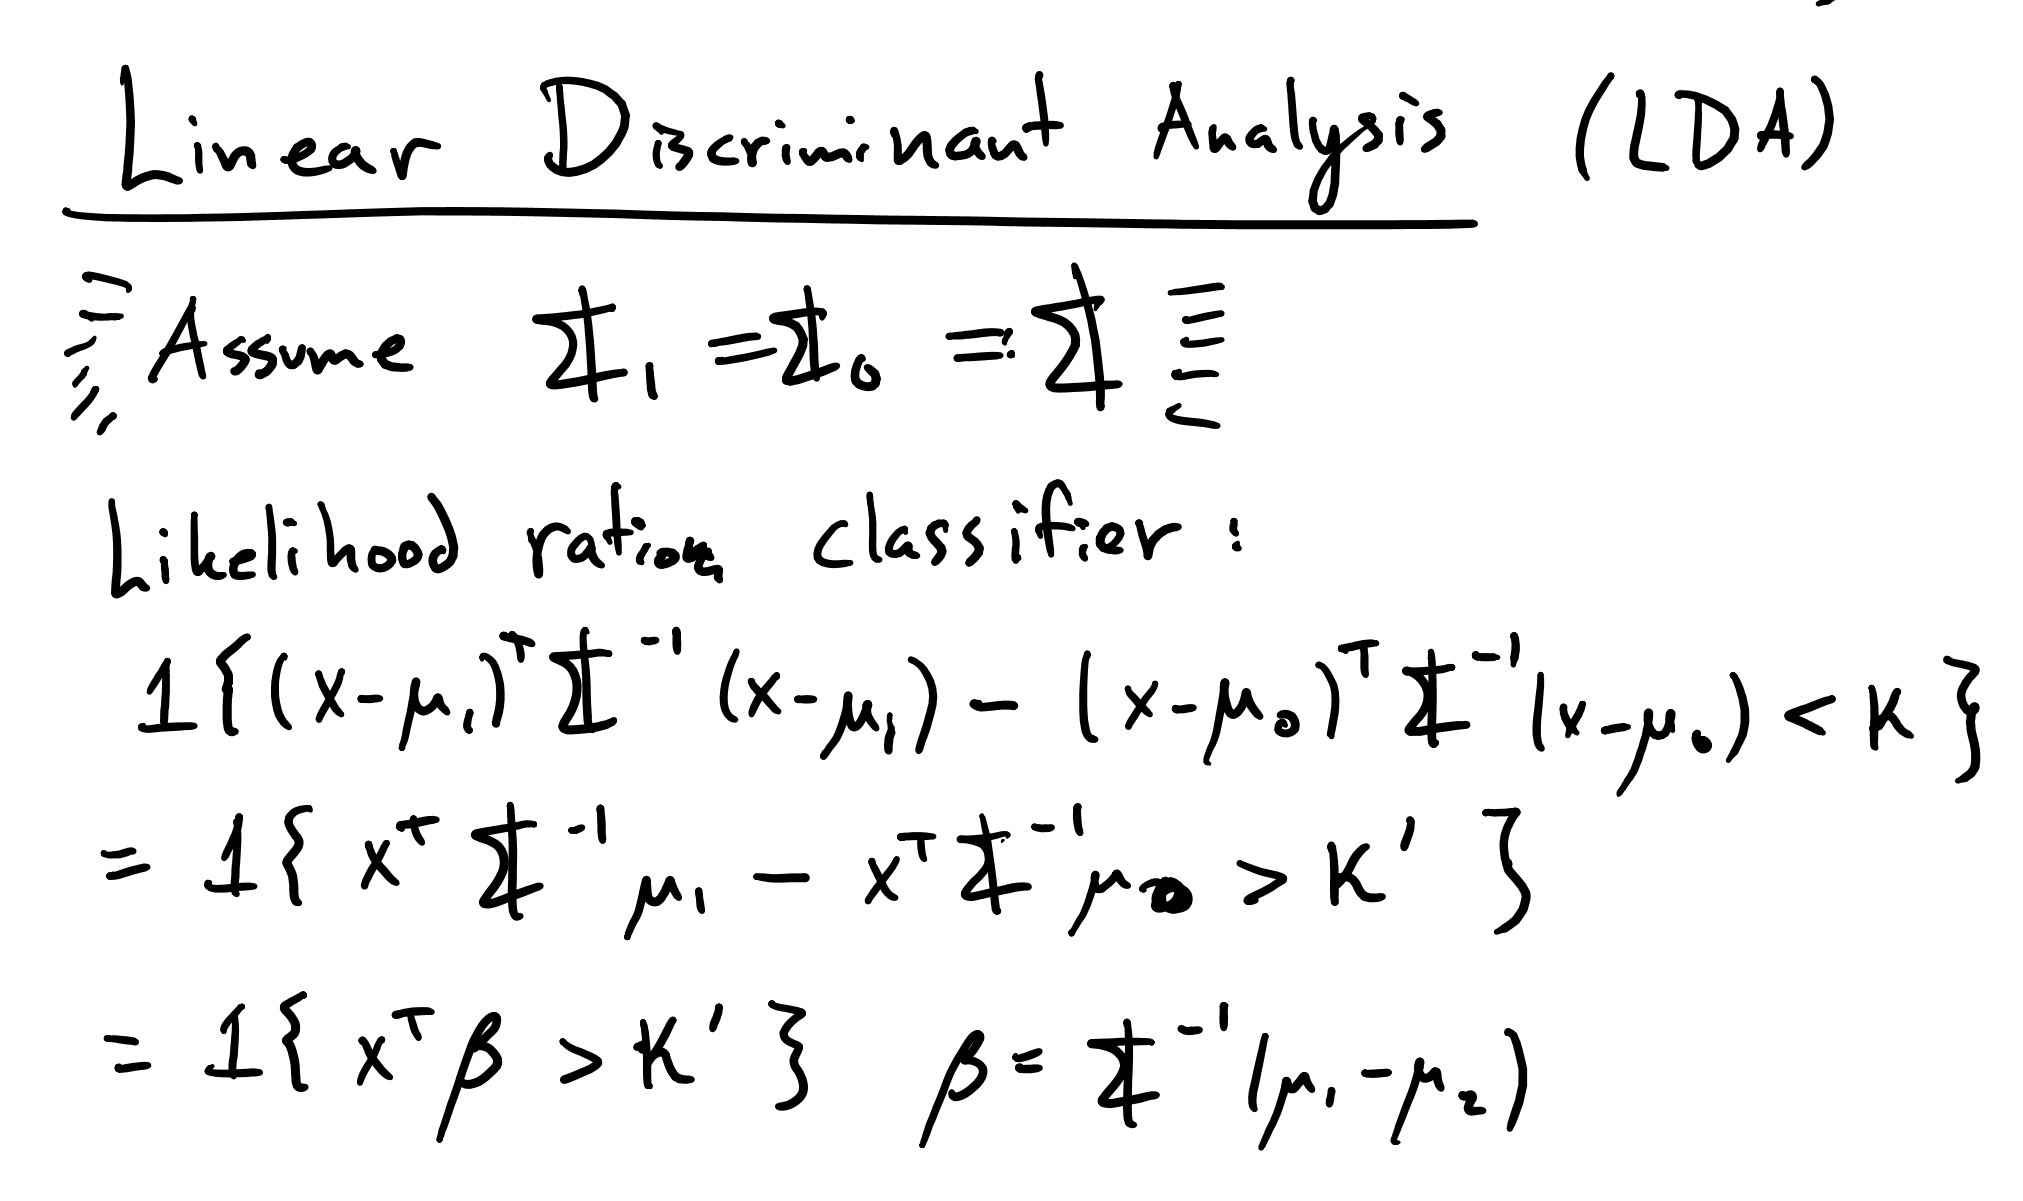 Linear Discriminant Analysis (LDA)
Assume Σ₁ = Σ₀ =: Σ
Likelihood ration classifier:
1{(x-μ₁)ᵀ Σ⁻¹ (x-μ₁) - (x-μ₀)ᵀ Σ⁻¹ (x-μ₀) < K}
= 1{ xᵀ Σ⁻¹ μ₁ - xᵀ Σ⁻¹ μ₀ > K' }
= 1{ xᵀβ > K' } β = Σ⁻¹(μ₁-μ₂)